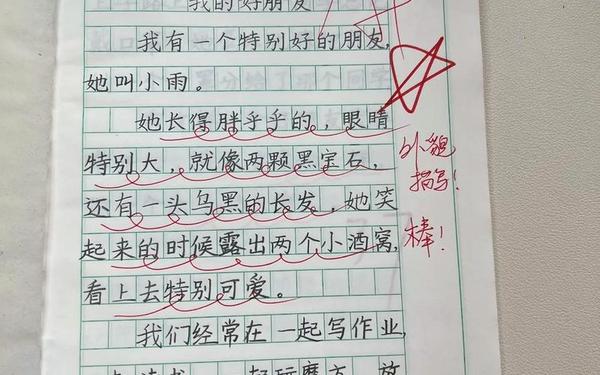 我的好朋友
我有一个特别好的朋友,
她叫小雨。
她长得胖乎乎的,眼睛
特别大,就像两颗黑宝石,
还有一头乌黑的长发,她笑
起来的时候露出两个小酒窝,
看上去特别可爱。
我们经常在一起写作业,
一起玩魔方,放
外貌
描写!
棒!